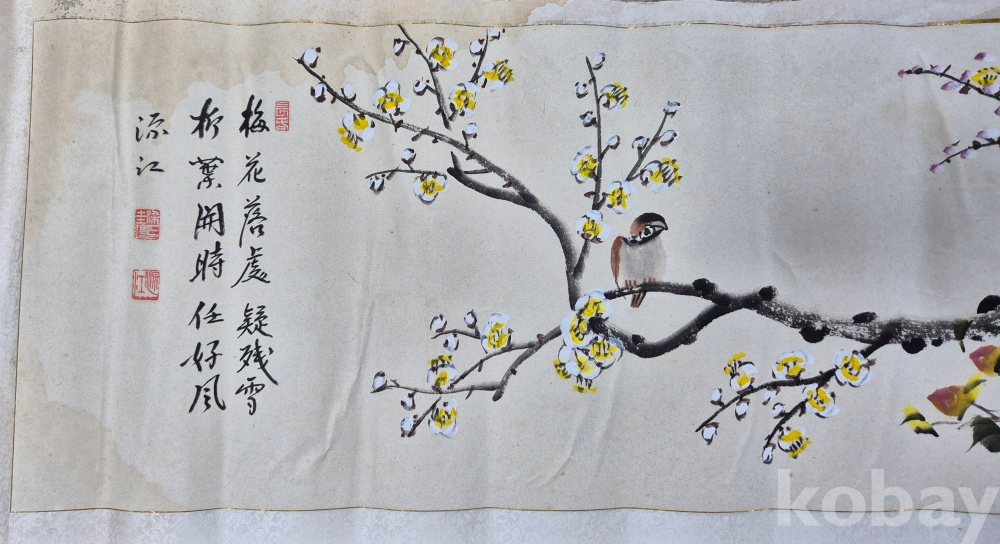 梅花落處疑残雪
柳葉開時任好風
源江
kobay